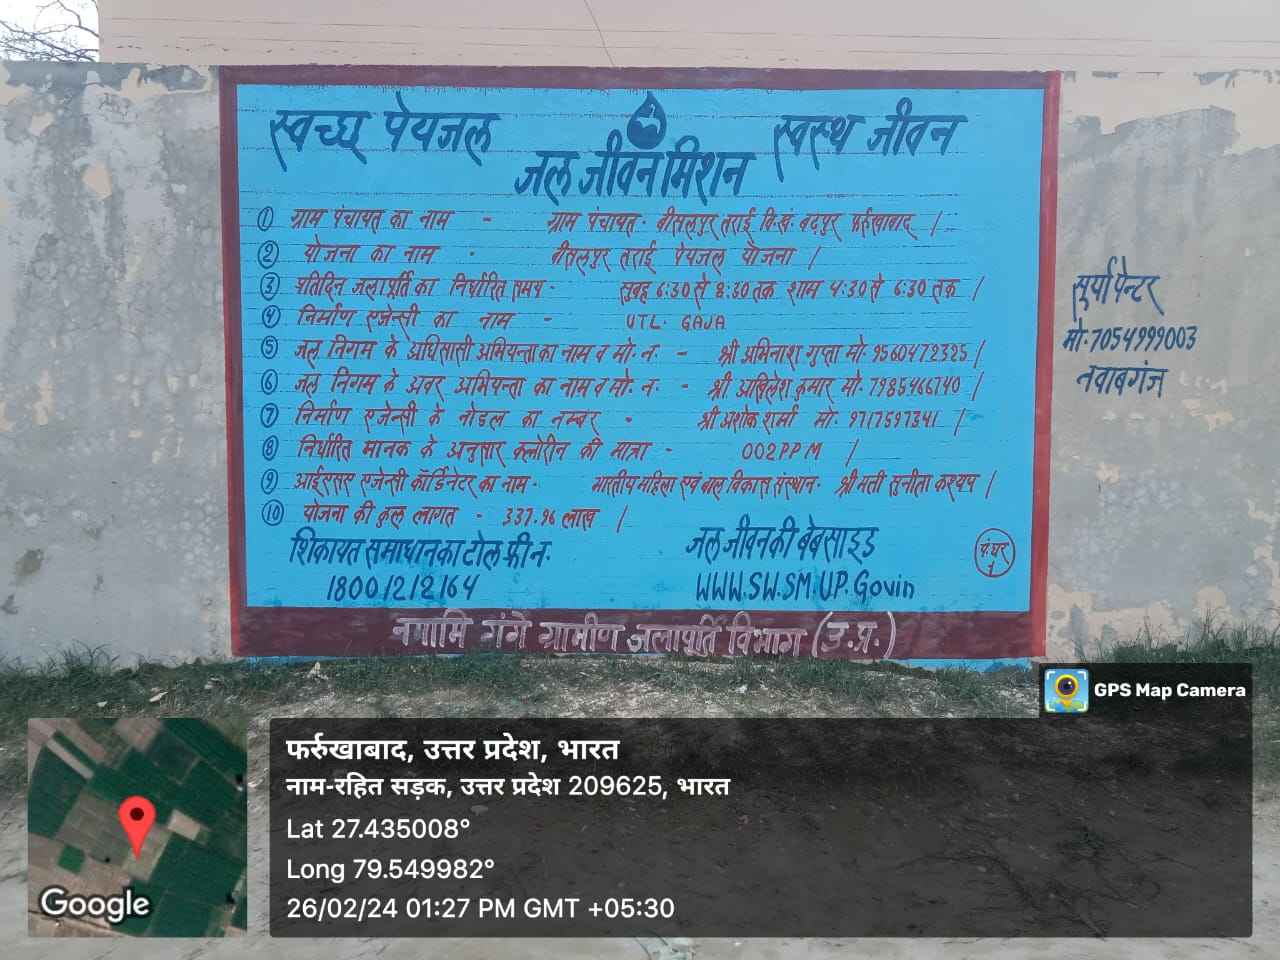 स्वच्छ पेयजल
स्वस्थ जीवन
जल जीवन मिशन
① ग्राम पंचायत का नाम - ग्राम पंचायत- बीसलपुर तराई वि.खं. बढ़पुर फर्रुखाबाद /
② योजना का नाम - बीसलपुर तराई पेयजल योजना /
③ प्रतिदिन जलापूर्ति का निर्धारित समय- सुबह 6:30 से 8:30 तक शाम 4:30 से 6:30 तक /
④ निर्माण एजेन्सी का नाम - UTL. GAJA
⑤ जल निगम के अधिसासी अभियन्ता का नाम व मो. न. - श्री अभिनाश गुप्ता मो. 9560472325 /
⑥ जल निगम के अवर अभियन्ता का नाम व मो. न. - श्री. अखिलेश कुमार मो. 7985466140 /
⑦ निर्माण एजेन्सी के नोडल का नम्बर - श्री अशोक शर्मा मो. 9717597341 /
⑧ निर्धारित मानक के अनुसार क्लोरीन की मात्रा - 002PPM /
⑨ आईएसए एजेन्सी कॉर्डिनेटर का नाम- भारतीय महिला एवं बाल विकास संस्थान- श्री मती सुनीता कश्यप /
⑩ योजना की कुल लागत - 337.96 लाख /
शिकायत समाधान का टोल फ्री न.
18001212164
जल जीवन की बेबसाइड
WWW.SW.SM.UP.Govin
पं.घर
1
नमामि गंगे ग्रामीण जलापूर्ति विभाग (उ.प्र.)
सूर्या पेन्टर
मो.7054999003
नवाबगंज
GPS Map Camera
फर्रुखाबाद, उत्तर प्रदेश, भारत
नाम-रहित सड़क, उत्तर प्रदेश 209625, भारत
Lat 27.435008°
Long 79.549982°
26/02/24 01:27 PM GMT +05:30
Google